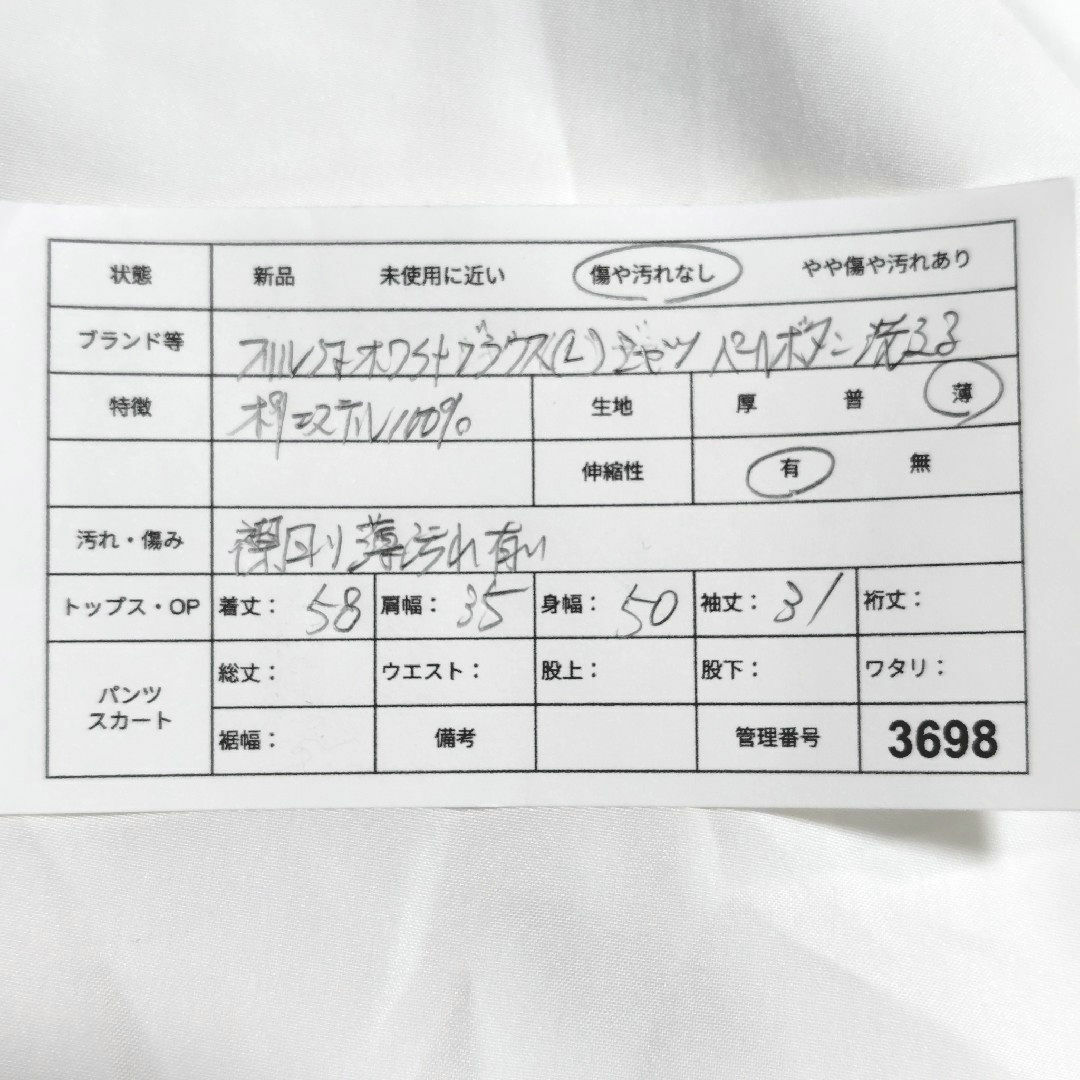 状態 新品 未使用に近い 傷や汚れなし やや傷や汚れあり
ブランド等 オフホワイトブラウス(L)シャツ パールボタン 洗える
特徴 ポリエステル100% 生地 厚 普 薄
伸縮性 有 無
汚れ・傷み 襟回り薄汚れ有り
トップス・OP 着丈: 58 肩幅: 35 身幅: 50 袖丈: 31 裄丈:
パンツ スカート 総丈: ウエスト: 股上: 股下: ワタリ:
裾幅: 備考 管理番号 3698